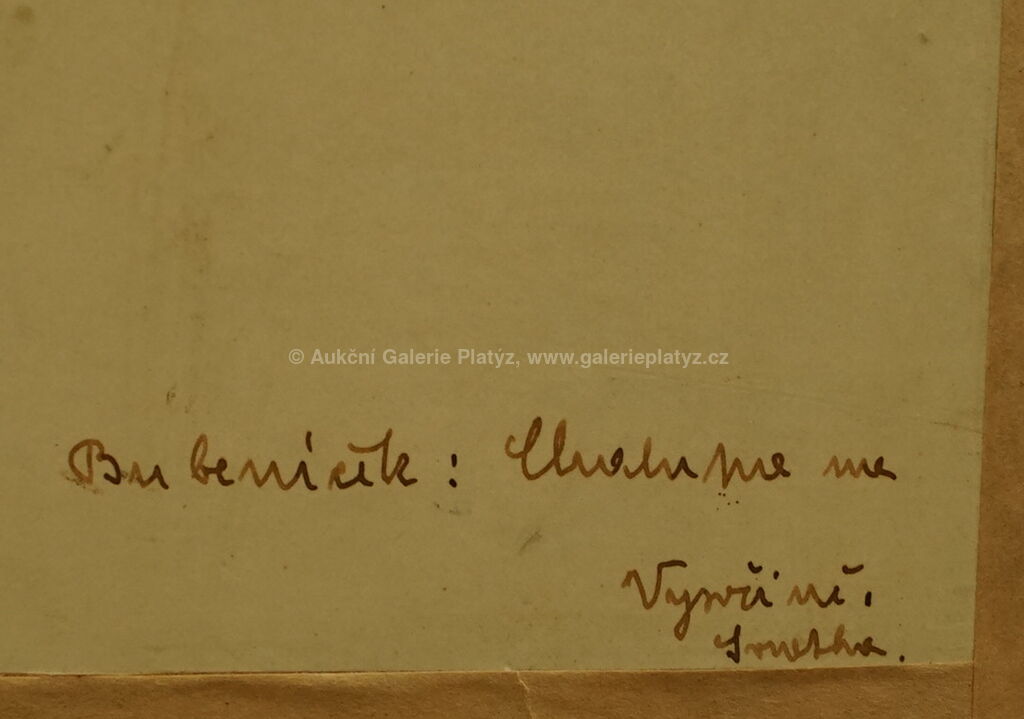 © Aukční Galerie Platýz, www.galerieplatyz.cz
Bubeníček: Chalupa na
Vysočině.